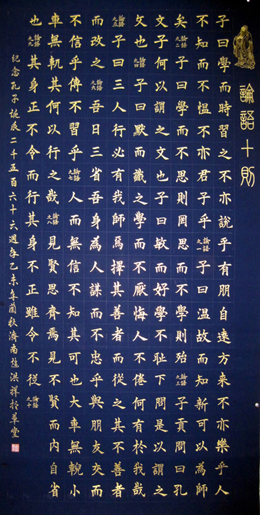 論語十則
子曰學而時習之不亦說乎有朋自遠方來不亦樂乎人
不知而不慍不亦君子乎 子曰溫故而知新可以為師
矣 子曰學而不思則罔思而不學則殆 子貢問曰孔
文子何以謂之文也子曰敏而好學不恥下問是以謂之
文也 子曰默而識之學而不厭誨人不倦何有於我哉
子曰三人行必有我師焉擇其善者而從之其不善者
而改之 吾日三省吾身為人謀而不忠乎與朋友交而
不信乎傳不習乎 人而無信不知其可也大車無輗小
車無軏其何以行之哉 見賢思齊焉見不賢而內自省
也 其身正不令而行其身不正雖令不從
紀念孔子誕辰二千五百六十六週年乙未年 秋濟南 洪祥於草堂